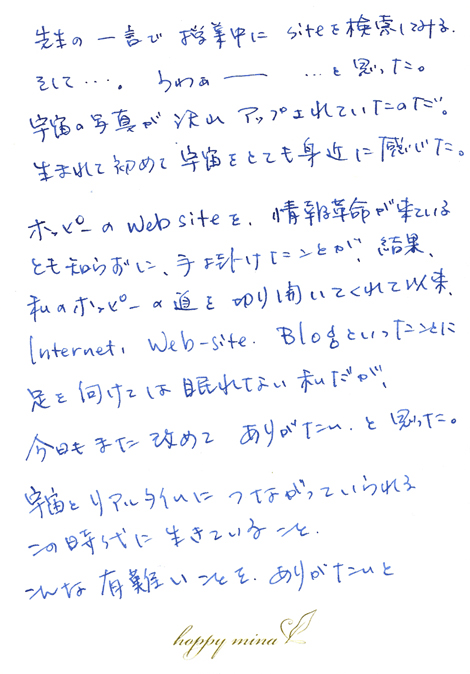 先生の一言で授業中に siteを検索してみる.
そして…. うわぁ―― …と思った。
宇宙の写真が沢山アップされていたのだ。
生まれて初めて宇宙をとても身近に感じた。
ホッピーのWeb siteを、情報革命が来ている
とも知らずに、手掛けたことが、結果、
私のホッピーの道を切り開いてくれて以来、
Internet, Web-site. Blogといったことに
足を向けては眠れない私だが、
今日もまた改めて ありがたい、と思った。
宇宙とリアルタイムにつながっていられる
この時代に生きていること.
こんな有難いことを、ありがたいと
hoppy mina